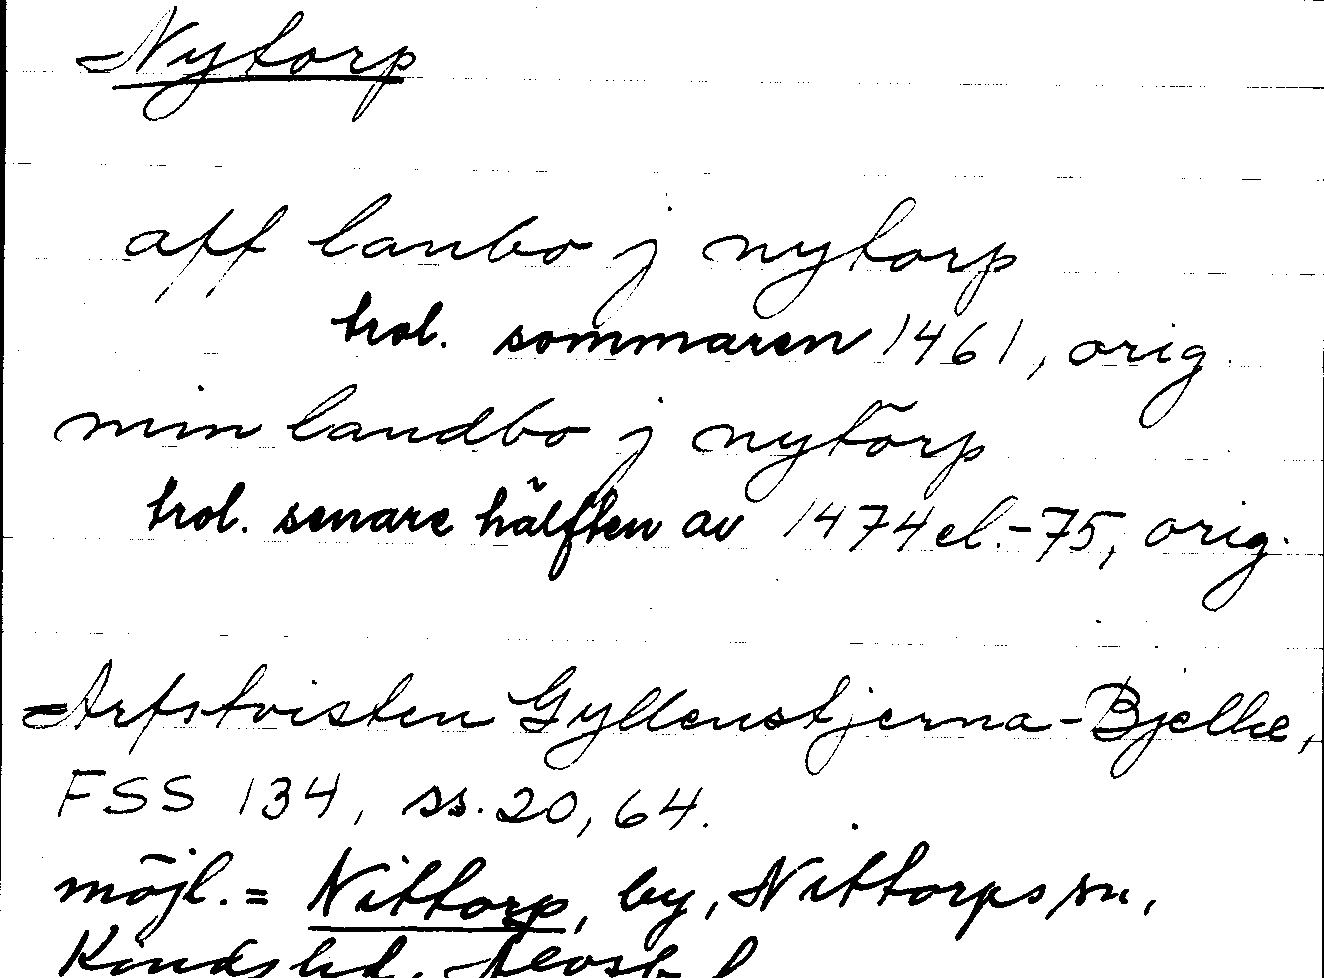 Nytorp
aff lanbo j nytorp
trol. sommaren 1461, orig.
min landbo j nytorp
trol. senare hälften av 1474 el. -75, orig.
Arfstvisten Gyllenstjerna-Bjelke,
FSS 134, ss. 20, 64.
möjl. = Nittorp, by, Nittorps sn,
Kinds hd, Älvsb. l.